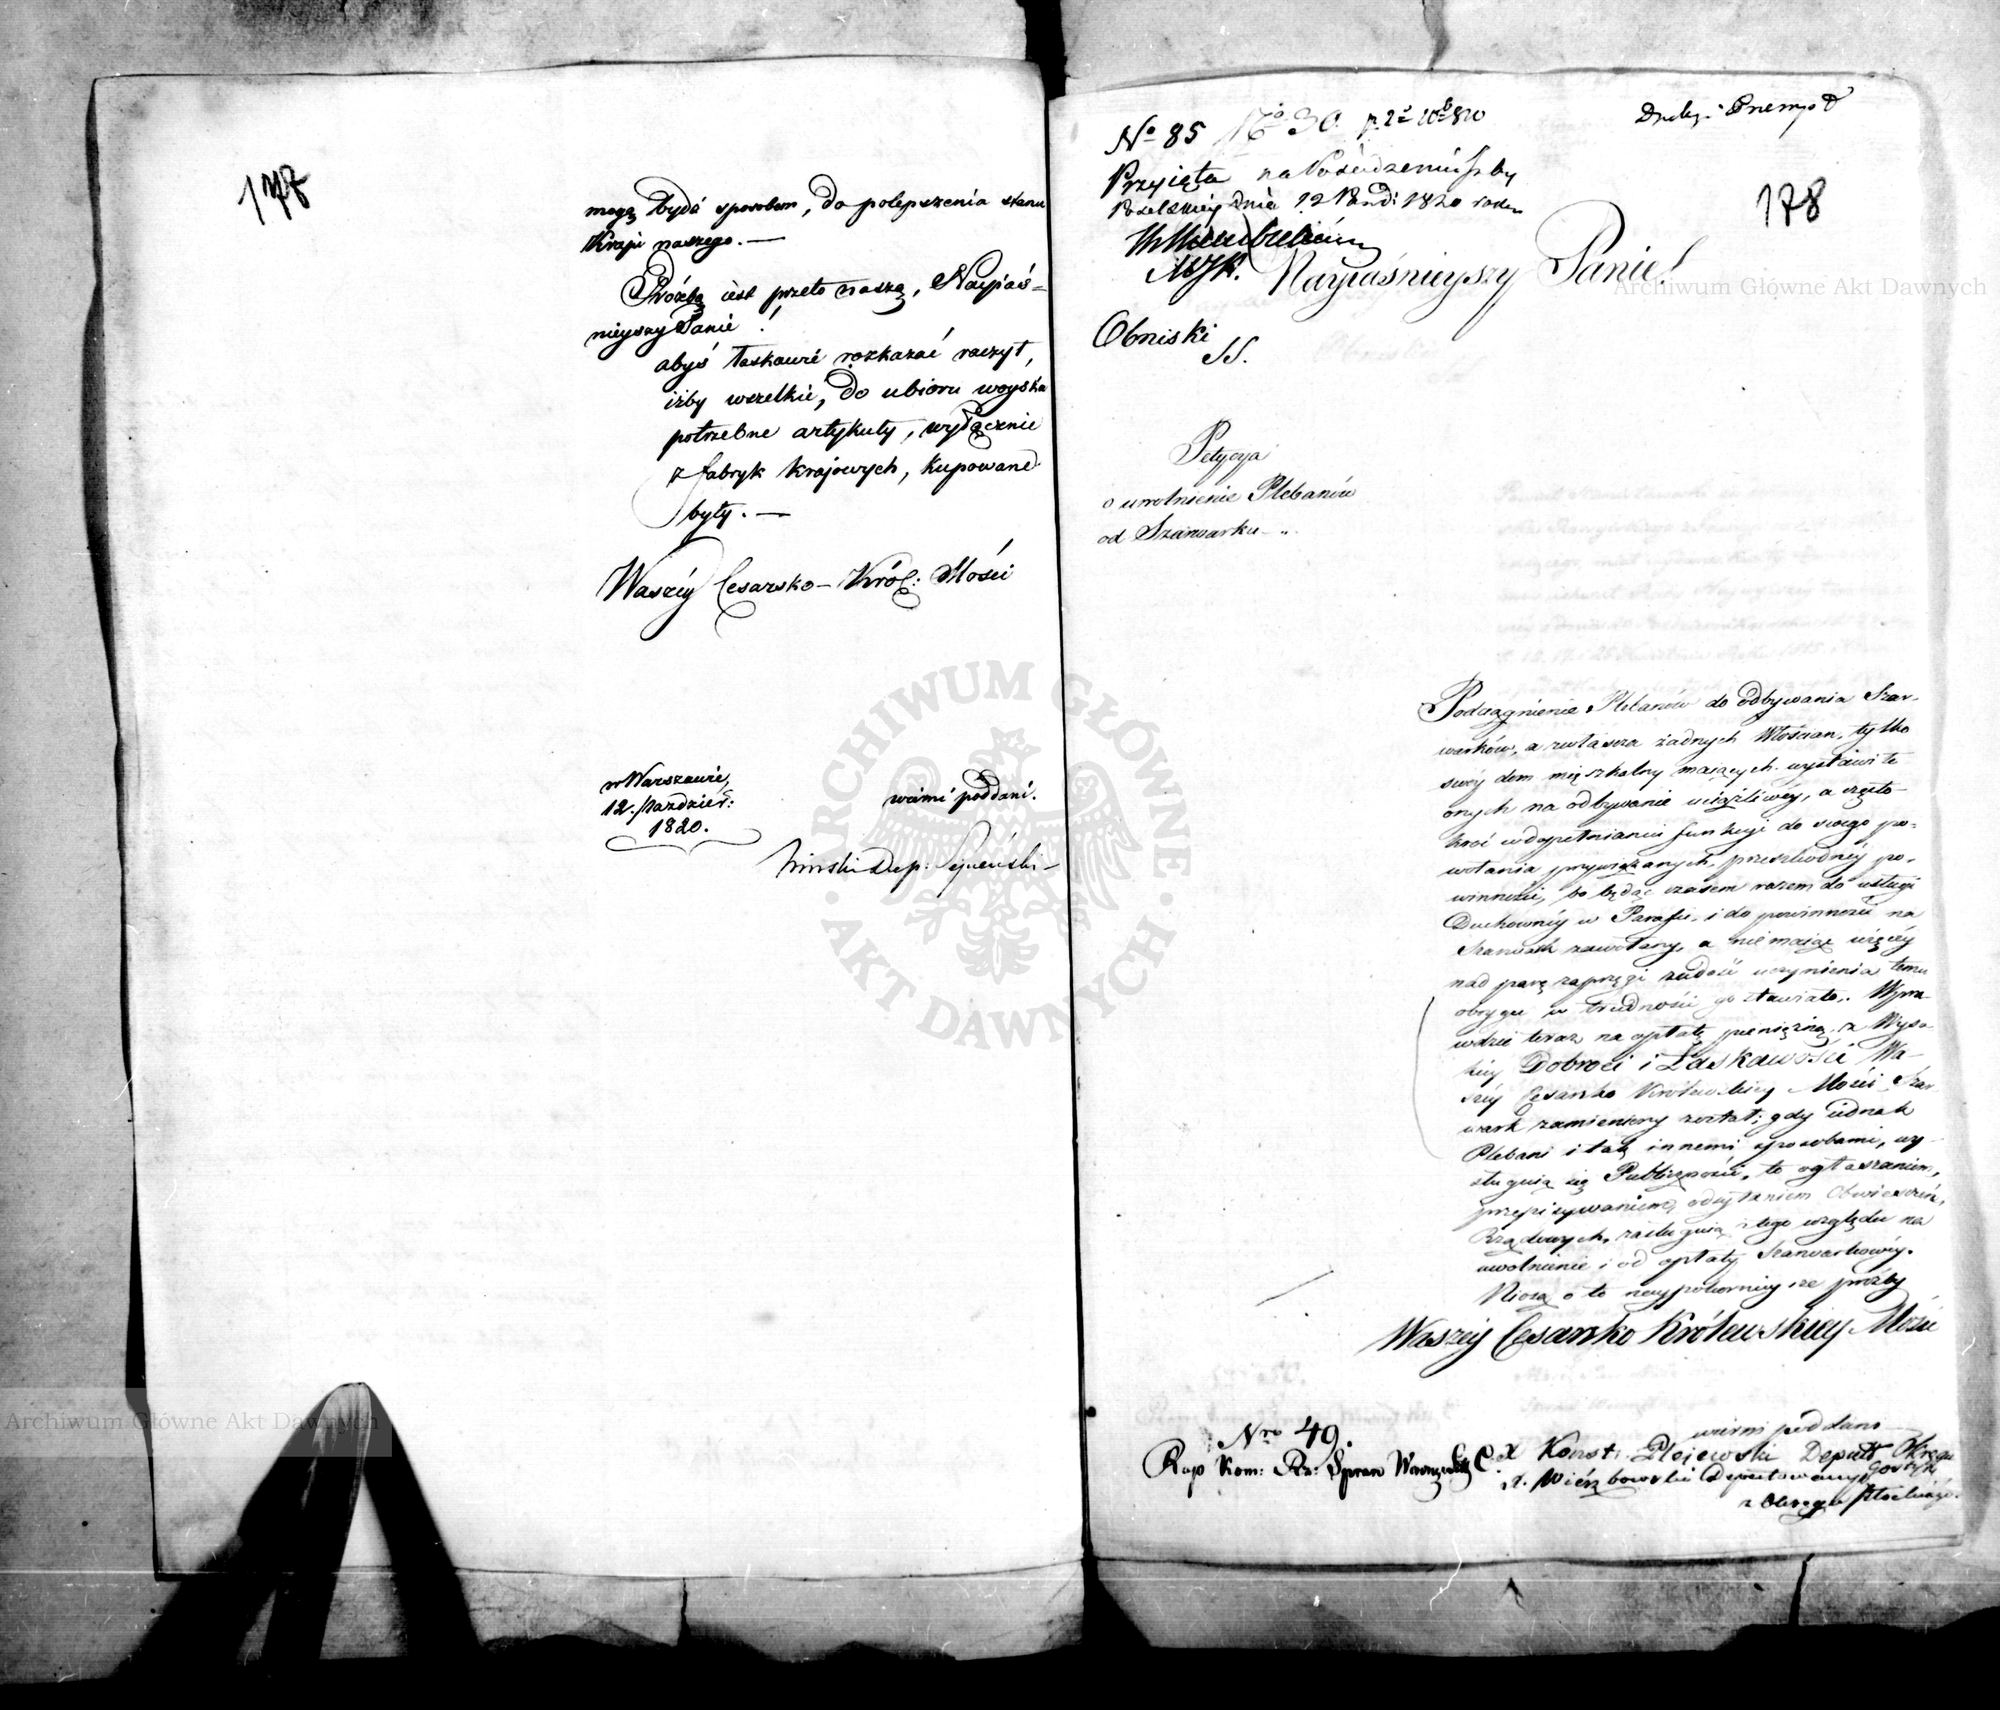 178
mogą bydź sposobem, do polepszenia stanu
Kraju naszego. —
Prośbą iest przeto naszą, Nayiaś-
nieyszy Panie!
abyś łaskawie rozkazać raczył,
iżby wszelkie, do ubioru woyska
potrzebne artykuły, wyłącznie
z fabryk krajowych, kupowane
były. —
Waszéy Cesarsko - Król: Mości
w Warszawie,
12. Paździer:
1820.
wierni poddani.
Dep: Seyneński
No 85 No 30
Przyięta na Posiedzeniu Izby
Poselskiey dnia 12 Paźdź: 1820 roku
Drugi Exemp
178
Nayiaśnieyszy Panie!
Obniski
SS.
Petycya
o uwolnienie Plebanów
od Szarwarku
Podciągnienie Plebanów do odbywania Szar-
warków, a zwłaszcza żadnych Włościan, tylko
swóy dom mięszkalny maiących wystawiło
onych na odbywanie uciążliwéy, a często-
kroć w dopełnianiu funkcyi do swego po-
wołania przywiązanych, przeszkodnéy po-
winności, bo będąc czasem razem do usługi
Duchownéy w Parafii, i do powinności na
Szarwark zawołany, a niemaiąc więcéy
nad parę zaprzęgi zadość uczynienia temu
oboygu w trudności go stawiało. Wpra-
wdzie teraz na opłatę pieniężną z Wyso-
kiey Dobroci i Łaskawości Wa-
széy Cesarsko Królewskiey Mości Szar-
wark zamieniony został; gdy iednak
Plebani i tak innemi sposobami, wy-
sługuią się Publiczności, to ogłaszaniem,
przepisywaniem, odsyłaniem Obwieszczeń
Rządowych, zasługuią z tego względu na
uwolnienie i od opłaty Szarwarkowéy.
Niosą o to naypokornieysze prośby
Waszéy Cesarsko Królewskiey Mości
wierni poddani
Nro 49.
Rap Kom: Rz: Spraw Wewnętrz
X Konst: Plejewski Deput Okręgu
X. Wierzbowski Deputowany
z Okręgu
Archiwum Główne Akt Dawnych
Archiwum Główne Akt Dawnych
ARCHIWUM GŁÓWNE AKT DAWNYCH